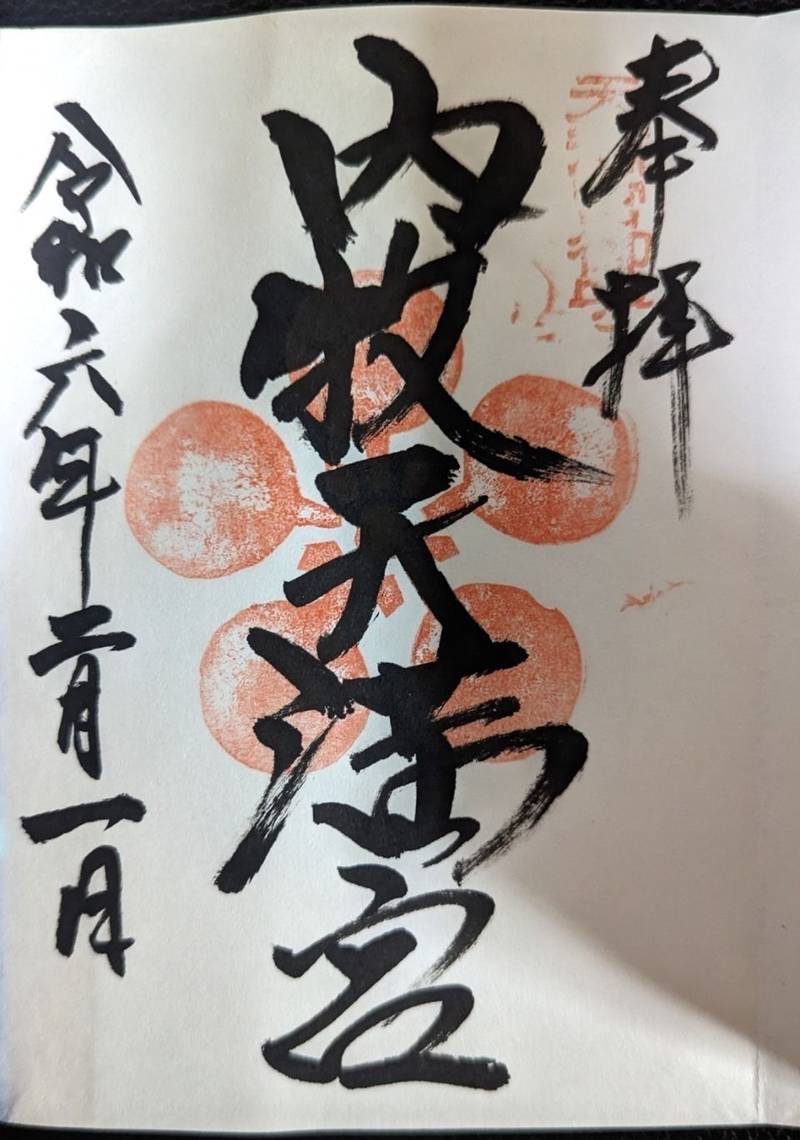 奉拝
内牧天満宮
令和六年二月一日